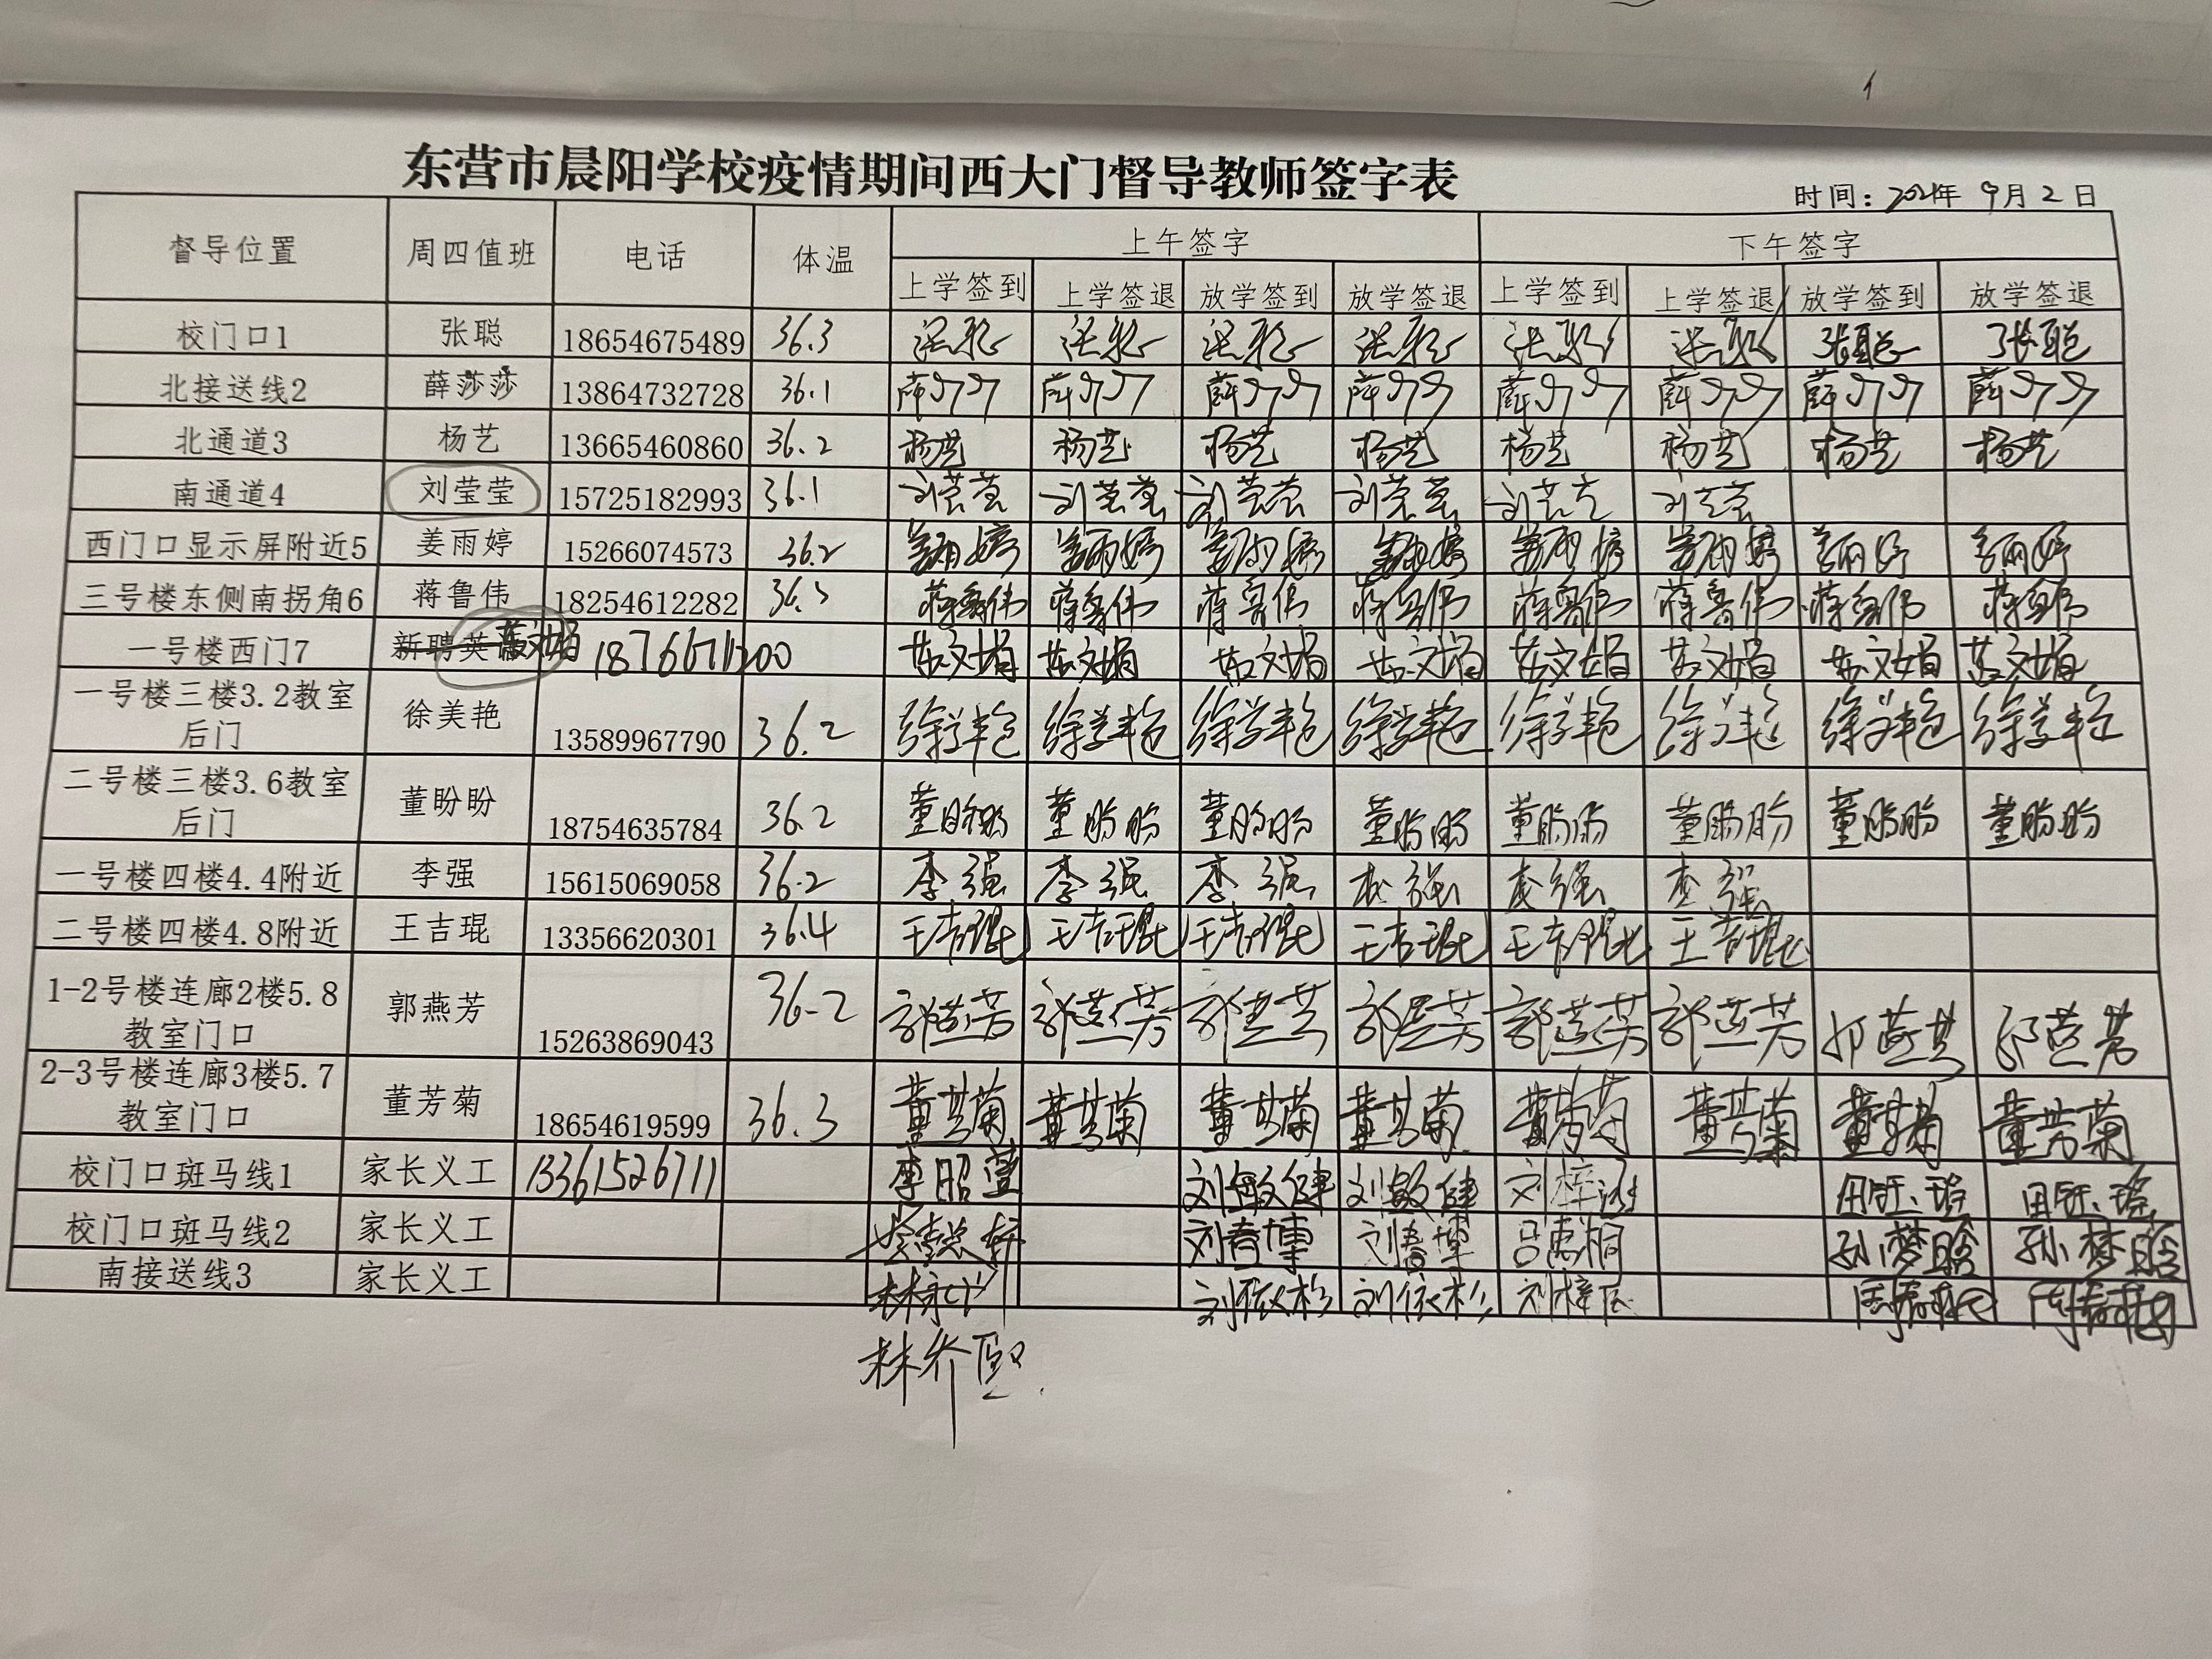 东营市晨阳学校疫情期间西大门督导教师签字表
时间：2021年 9月 2日
督导位置 周四值班 电话 体温 上午签字 下午签字
上学签到 上学签退 放学签到 放学签退 上学签到 上学签退 放学签到 放学签退
校门口1 张聪 18654675489 36.3 张聪 张聪 张聪 张聪 张聪 张聪 张聪 张聪
北接送线2 薛莎莎 13864732728 36.1 薛莎莎 薛莎莎 薛莎莎 薛莎莎 薛莎莎 薛莎莎 薛莎莎 薛莎莎
北通道3 杨艺 13665460860 36.2 杨艺 杨艺 杨艺 杨艺 杨艺 杨艺 杨艺 杨艺
南通道4 刘莹莹 15725182993 36.1 刘莹莹 刘莹莹 刘莹莹 刘莹莹 刘莹莹 刘莹莹
西门口显示屏附近5 姜雨婷 15266074573 36.2 姜雨婷 姜雨婷 姜雨婷 姜雨婷 姜雨婷 姜雨婷 姜雨婷 姜雨婷
三号楼东侧南拐角6 蒋鲁伟 18254612282 蒋鲁伟 蒋鲁伟 蒋鲁伟 蒋鲁伟 蒋鲁伟 蒋鲁伟 蒋鲁伟 蒋鲁伟
一号楼西门7 新聘英 苏文娟 苏文娟 苏文娟 苏文娟 苏文娟 苏文娟 苏文娟 苏文娟 苏文娟
一号楼三楼3.2教室
后门 徐美艳 13589967790 36.2 徐美艳 徐美艳 徐美艳 徐美艳 徐美艳 徐美艳 徐美艳 徐美艳
二号楼三楼3.6教室
后门 董盼盼 18754635784 36.2 董盼盼 董盼盼 董盼盼 董盼盼 董盼盼 董盼盼 董盼盼 董盼盼
一号楼四楼4.4附近 李强 15615069058 36.2 李强 李强 李强 李强 李强 李强
二号楼四楼4.8附近 王吉琨 13356620301 36.4 王吉琨 王吉琨 王吉琨 王吉琨 王吉琨 王吉琨
1-2号楼连廊2楼5.8
教室门口 郭燕芳 15263869043 36.2 郭燕芳 郭燕芳 郭燕芳 郭燕芳 郭燕芳 郭燕芳 郭燕芳 郭燕芳
2-3号楼连廊3楼5.7
教室门口 董芳菊 18654619599 36.3 董芳菊 董芳菊 董芳菊 董芳菊 董芳菊 董芳菊 董芳菊 董芳菊
校门口斑马线1 家长义工 13361526711 李昭萱 刘敏健 刘敏健 刘梓涵 田钰瑶 田钰瑶
校门口斑马线2 家长义工 刘春博 刘春博 吕惠桐 孙梦晗 孙梦晗
南接送线3 家长义工 刘依杉 刘依杉